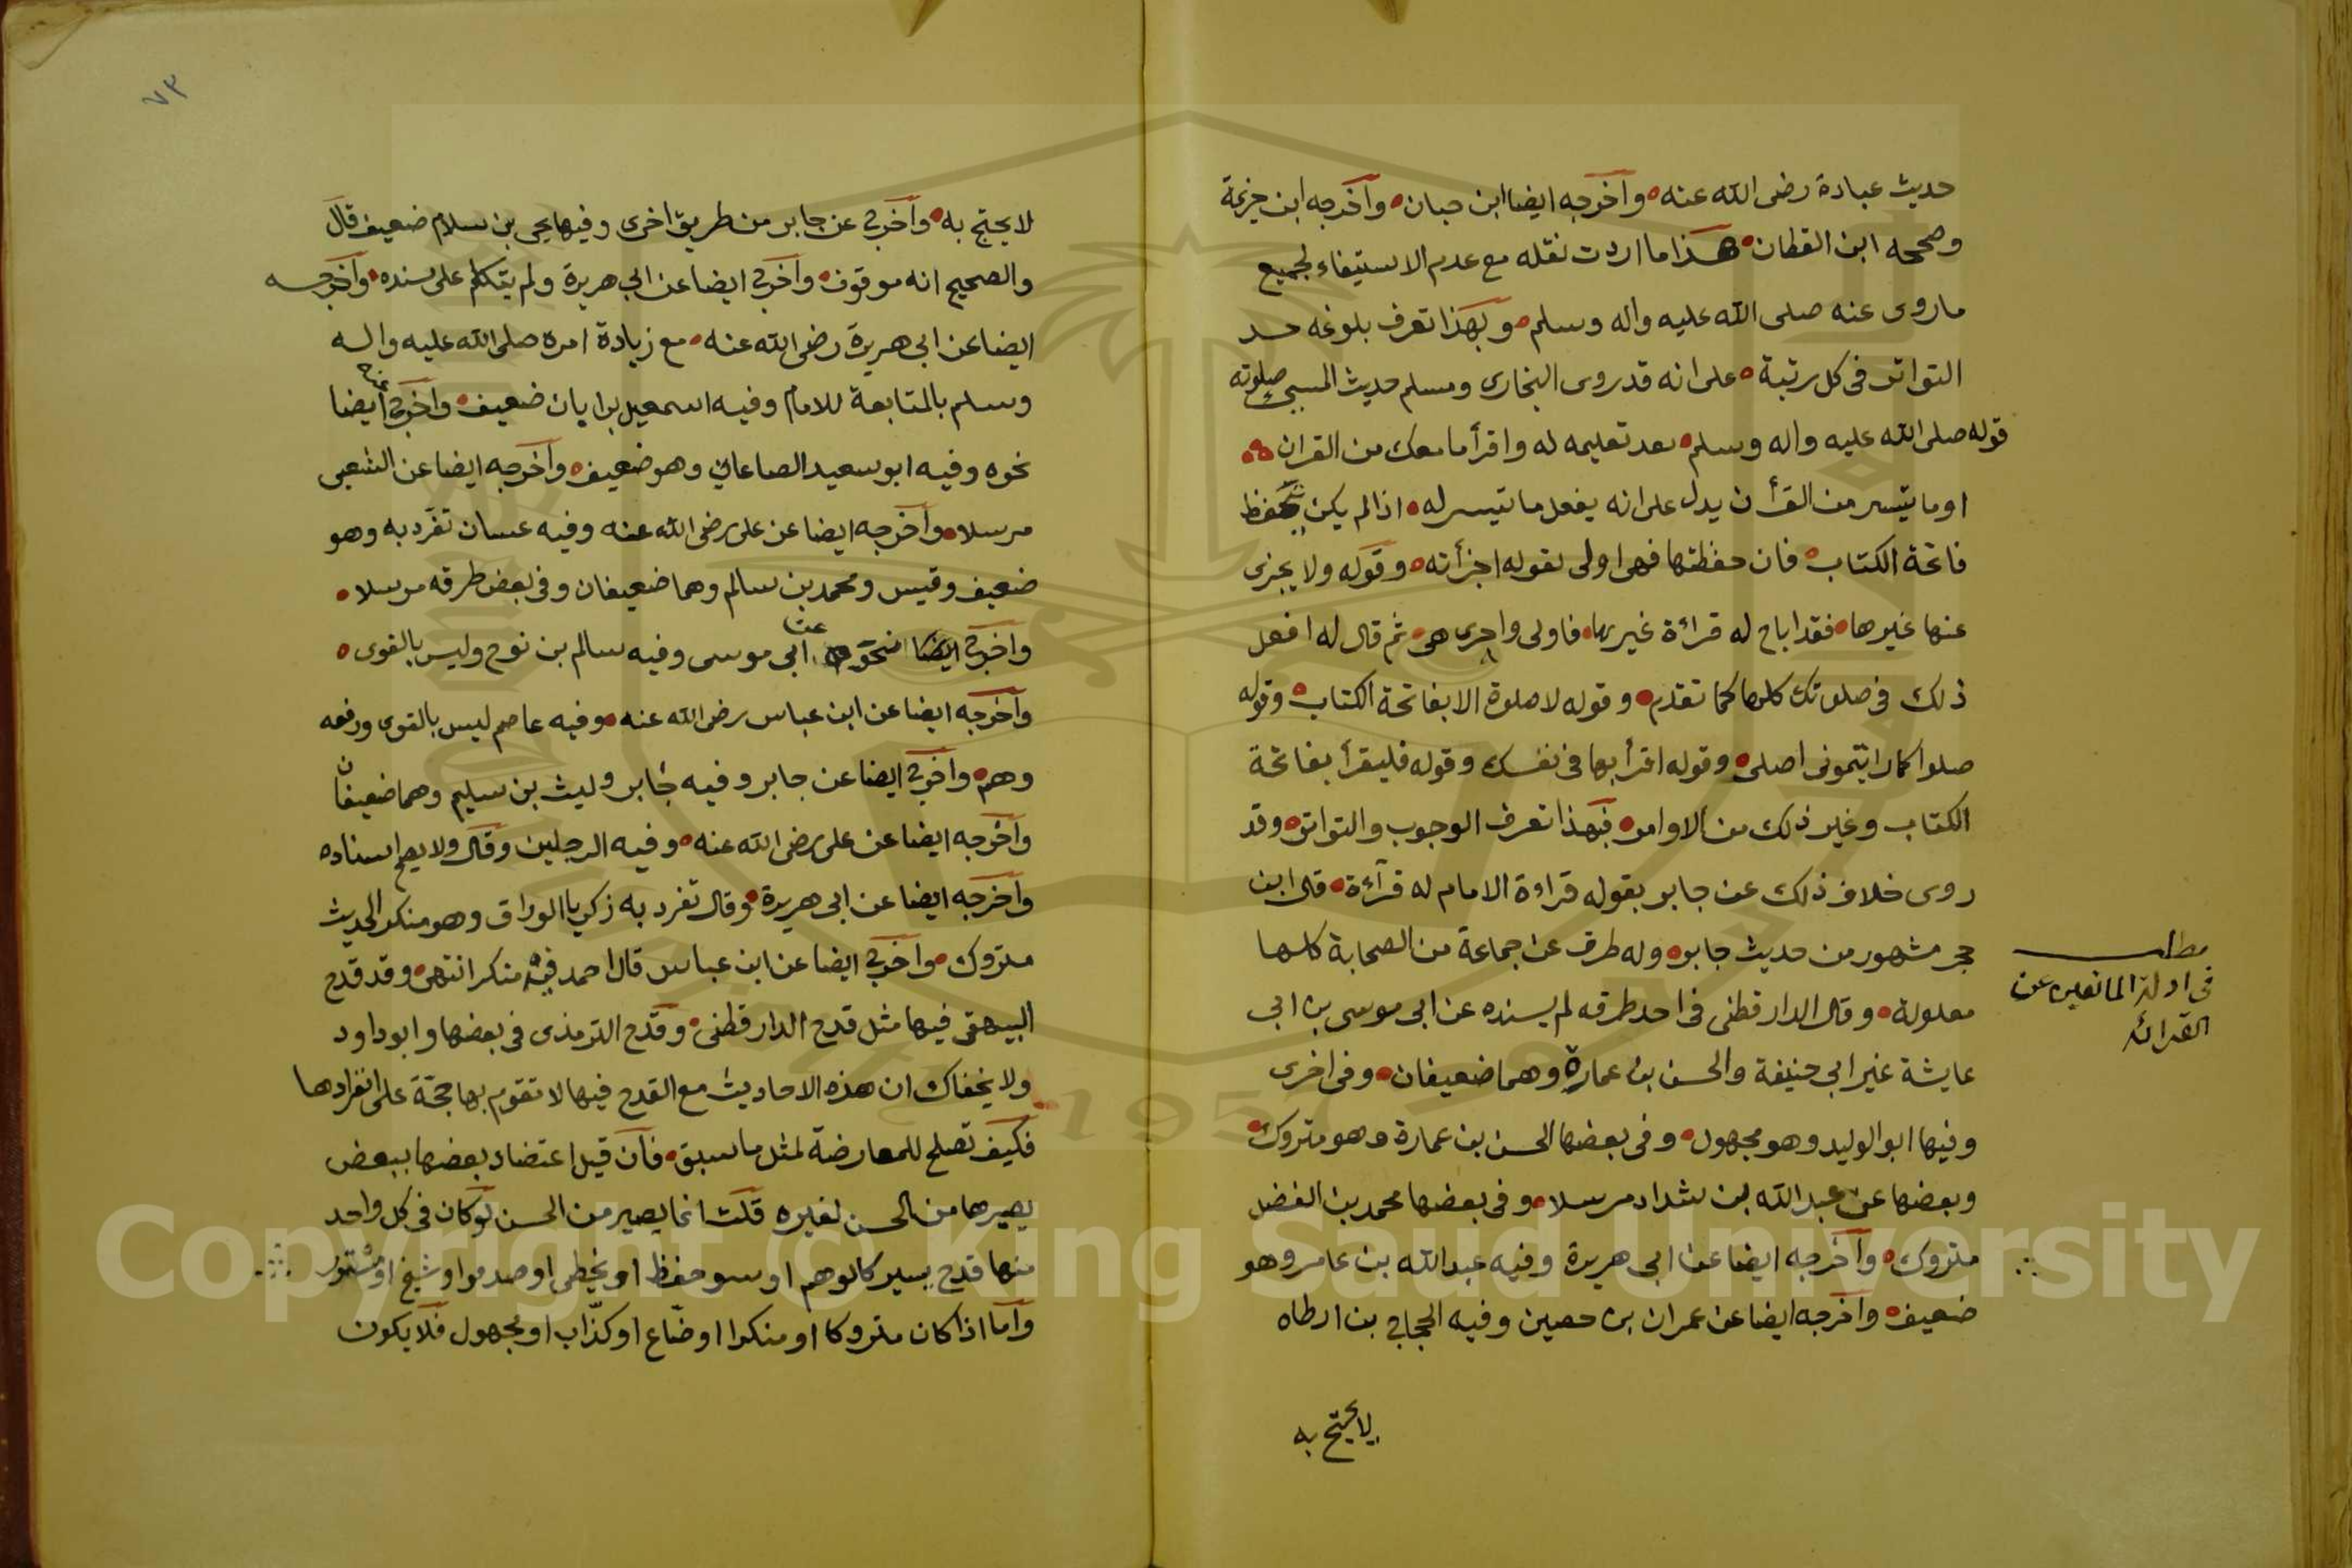 حديث عبادة رضى الله عنه وأخرجه ايضا ابن حبان وأخرجه ابن خزيمة
وصححه ابن القطان هذا ما اردت نقله مع عدم الاستيفاء لجميع
ما روى عنه صلى الله عليه واله وسلم وبهذا تعرف بلوغه حد
التواتر فى كل رتبة على انه قد روى البخارى ومسلم حديث المسيئ صلوته
قوله صلى الله عليه واله وسلم بعد تعليمه له واقرأ ما معك من القران
او ما تيسر من القرأن يدل على انه يفعل ما تيسر له اذا لم يكن يحفظ
فاتحة الكتاب فان حفظتها فهى اولى لقوله اجزأته وقوله ولا يجزى
عنها غيرها فقد اباح له قراءة غيرها فاولى واحرى هى ثم قال له افعل
ذلك فى صلوتك كلها كما تقدم وقوله لا صلوة الا بفاتحة الكتاب وقوله
صلوا كما رايتمونى اصلى وقوله اقرأ بها فى نفسك وقوله فليقرأ بفاتحة
الكتاب وغير ذلك من الاوامر فبهذا تعرف الوجوب والتواتر وقد
روى خلاف ذلك عن جابر بقوله قراءة الامام له قرآءة قال ابن
حجر مشهور من حديث جابر وله طرق عن جماعة من الصحابة كلها
معلولة وقال الدارقطنى فى احد طرقه لم يسنده عن ابى موسى بن ابى
عايشة غير ابى حنيفة والحسن بن عمارة وهما ضعيفان وفى اخرى
وفيها ابو الوليد وهو مجهول وفى بعضها الحسن بن عمارة وهو متروك
وبعضها عن عبد الله بن شداد مرسلا وفى بعضها محمد بن الفضل
متروك وأخرجه ايضا عن ابى هريرة وفيه عبد الله بن عامر وهو
ضعيف وأخرجه ايضا عن عمران بن حصين وفيه الحجاج بن ارطاه
لا يحتج به
مطلب
فى ادلة المانعين عن
القرائة
٧٣
لا يحتج به وأخرج عن جابر من طريق اخرى وفيها يحيى بن سلام ضعيف قال
والصحيح انه موقوف وأخرج ايضا عن ابى هريرة ولم يتكلم على سنده وأخرجه
ايضا عن ابى هريرة رضى الله عنه مع زيادة امره صلى الله عليه واله
وسلم بالمتابعة للامام وفيه اسمعيل بن ابان ضعيف وأخرج عنه ايضا
نحوه وفيه ابو سعيد الصاغانى وهو ضعيف وأخرجه ايضا عن الشعبى
مرسلا وأخرجه ايضا عن على رضى الله عنه وفيه غسان تفرد به وهو
ضعيف وقيس ومحمد بن سالم وهما ضعيفان وفى بعض طرقه مرسلا
وأخرج ايضا نحوه عن ابى موسى وفيه سالم بن نوح وليس بالقوى
وأخرجه ايضا عن ابن عباس رضى الله عنه وفيه عاصم ليس بالقوى ورفعه
وهم وأخرج ايضا عن جابر وفيه جابر وليث بن سليم وهما ضعيفان
وأخرجه ايضا عن على رضى الله عنه وفيه الرجلين وقال ولا يصح اسناده
وأخرجه ايضا عن ابى هريرة وقال تفرد به زكريا الوراق وهو منكر الحديث
متروك وأخرج ايضا عن ابن عباس قال احمد فيه منكر انتهى وقد قدح
البيهقى فيها مثل قدح الدارقطنى وقدح الترمذى فى بعضها وابو داود
ولا يخفاك ان هذه الاحاديث مع القدح فيها لا تقوم بها حجة على انفرادها
فكيف تصلح للمعارضة لمثل ما سبق فأن قيل اعتضاد بعضها ببعض
يصيرها من الحسن لغيره قلت انما يصير من الحسن لو كان فى كل واحد
منها قدح يسير كالوهم او سو حفظ او يخطى او صدموا او شيخ او مستور
وأما اذا كان متروكا او منكرا او ضّاع او كذّاب او مجهول فلا يكون
Copyright © King Saud University
1957